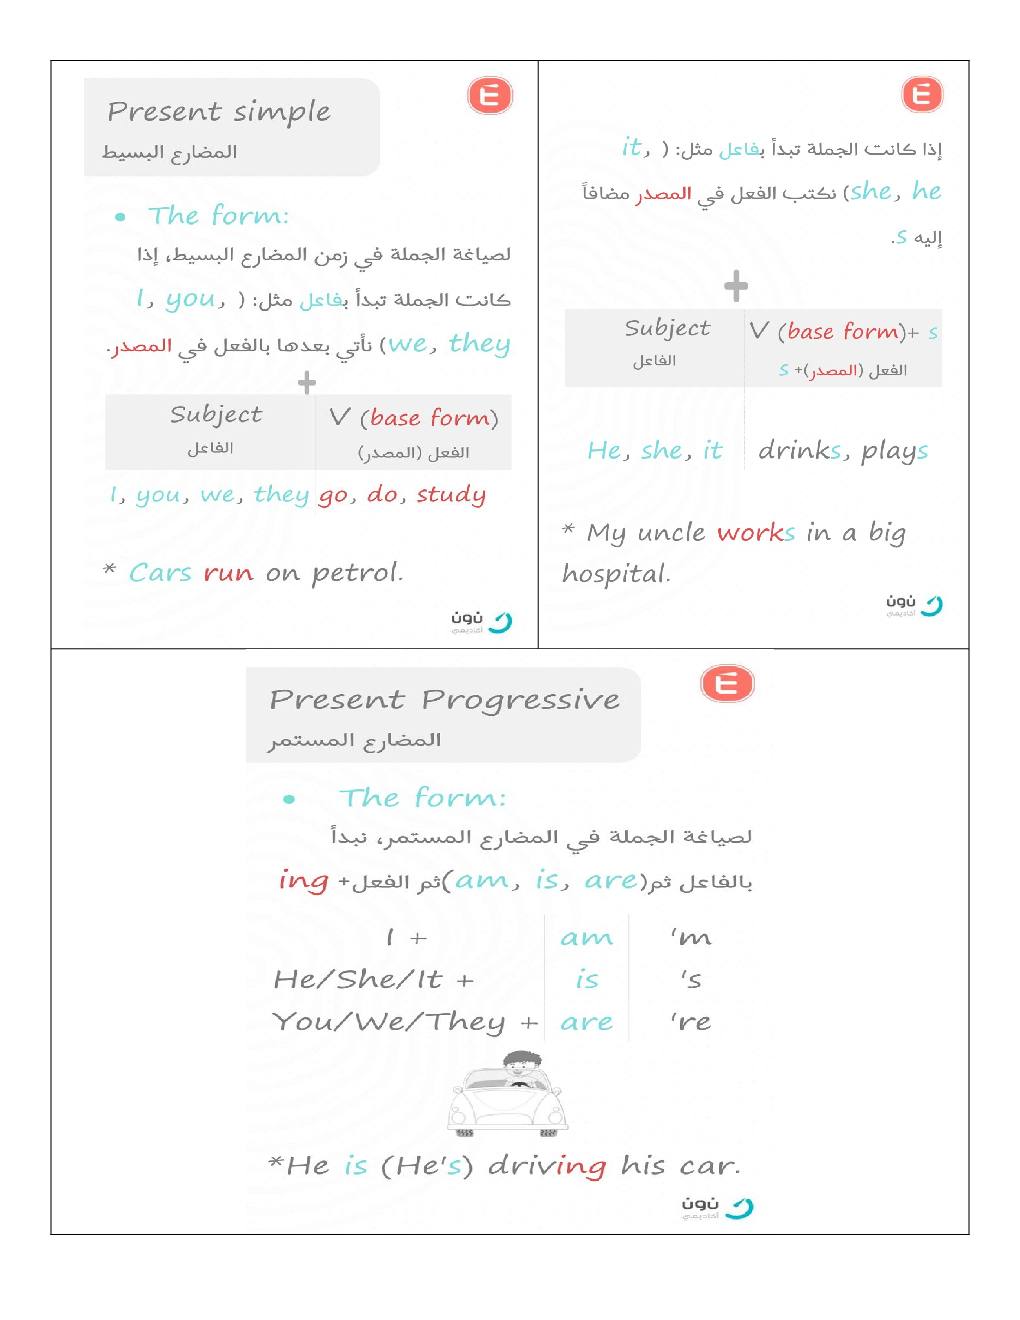 Present simple
المضارع البسيط
• The form:
لصياغة الجملة في زمن المضارع البسيط، إذا
كانت الجملة تبدأ بفاعل مثل: (I, you,
we, they) نأتي بعدها بالفعل في المصدر.
+
Subject V (base form)
الفاعل الفعل (المصدر)
I, you, we, they go, do, study
* Cars run on petrol.
نون
أكاديمي
إذا كانت الجملة تبدأ بفاعل مثل: (it,
she, he) نكتب الفعل في المصدر مضافاً
إليه s.
+
Subject V (base form)+ s
الفاعل الفعل (المصدر)+ s
He, she, it drinks, plays
* My uncle works in a big
hospital.
نون
أكاديمي
Present Progressive
المضارع المستمر
• The form:
لصياغة الجملة في المضارع المستمر، نبدأ
بالفاعل ثم(am, is, are) ثم الفعل+ ing
I + am 'm
He/She/It + is 's
You/We/They + are 're
*He is (He's) driving his car.
نون
أكاديمي